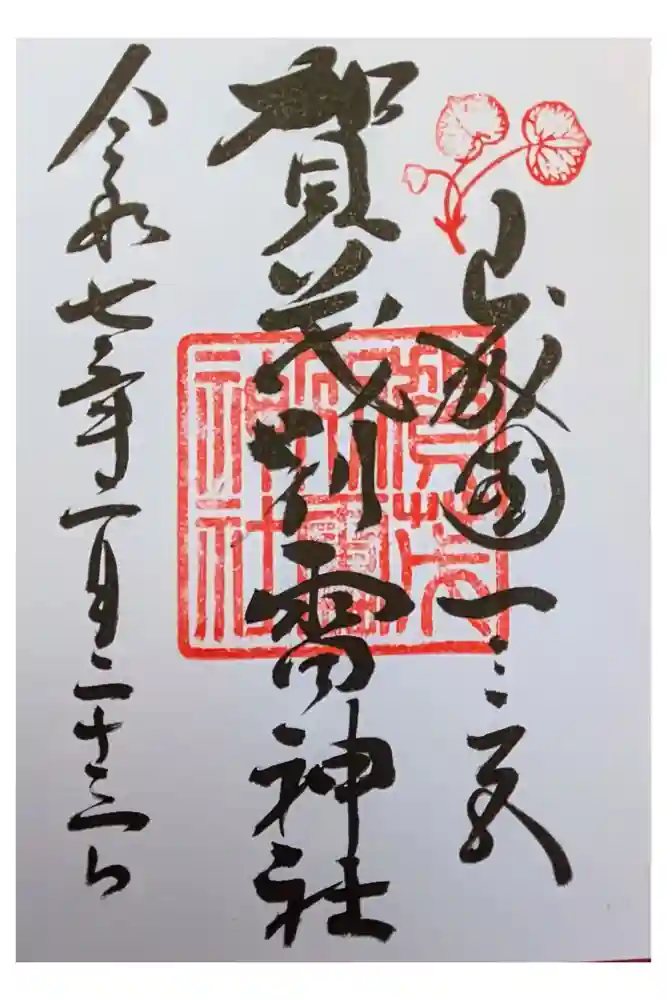 山城國一之宮
賀茂別雷神社
令和七年二月二十三日
賀茂
別雷
神社